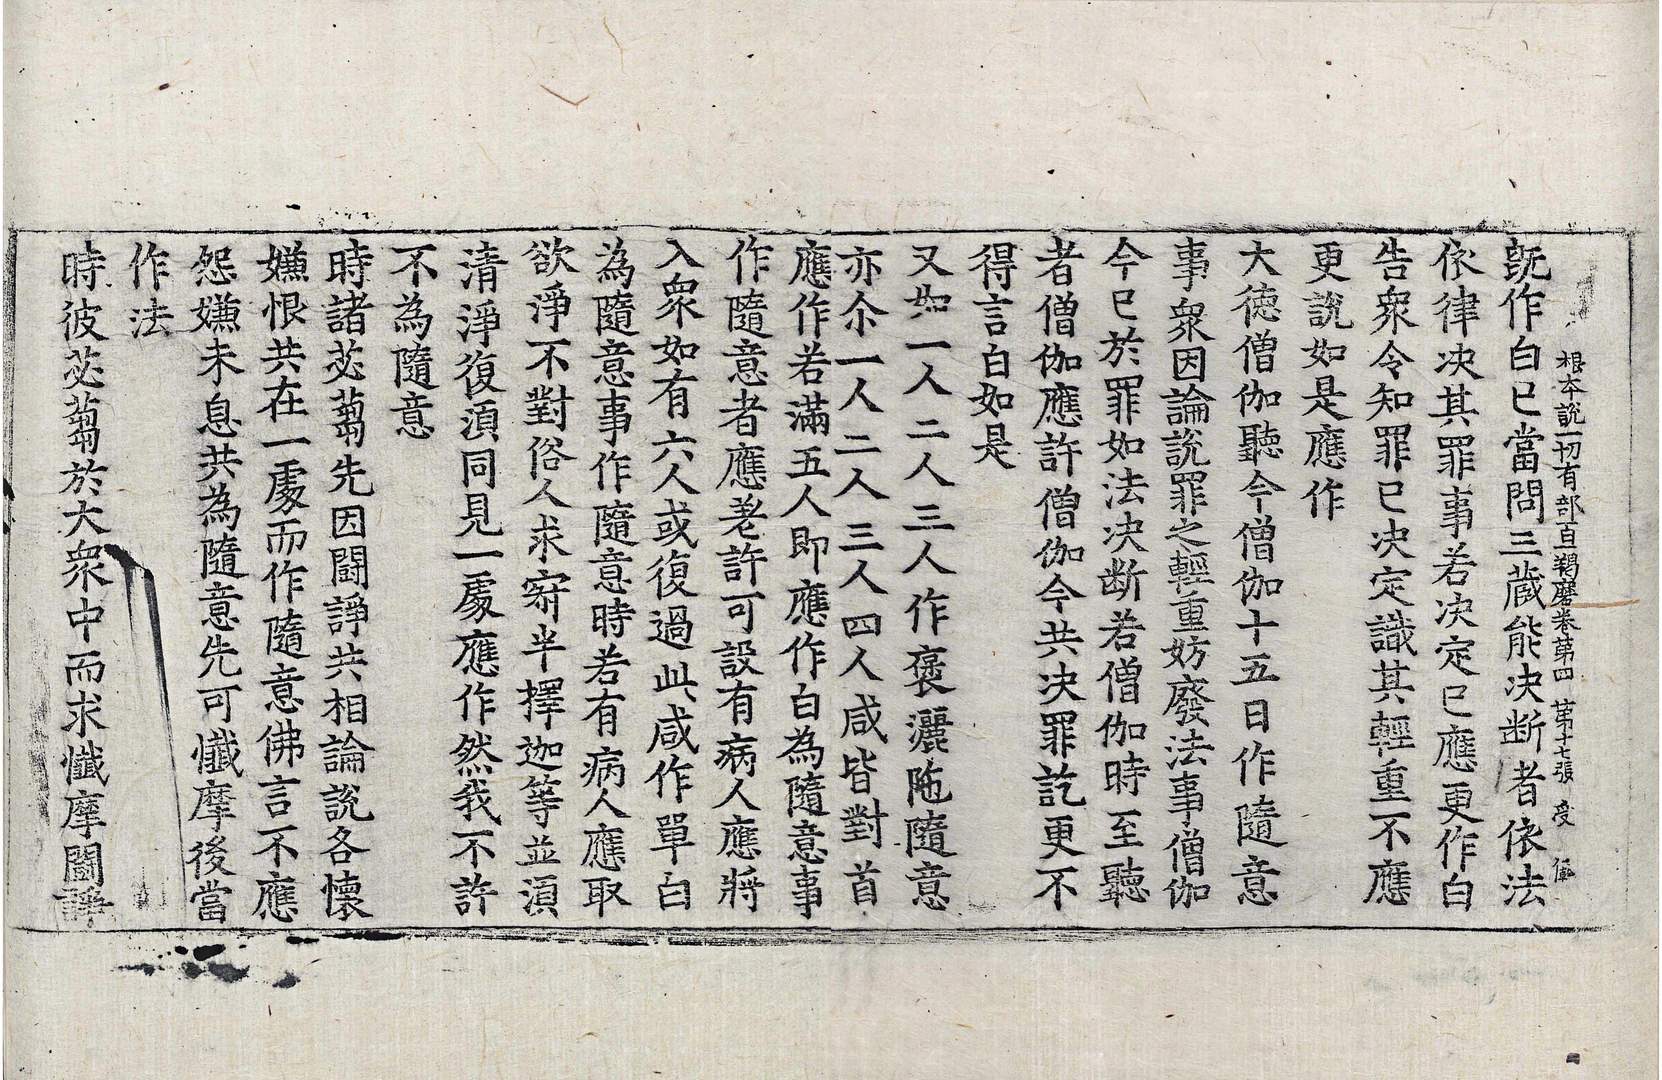 根本說一切有部百羯磨卷第四 第十七張 受
旣作白已當問三藏能决断者依法
依律决其罪事若决定已應更作白
告衆令知罪已决定識其輕重不應
更說如是應作
大德僧伽聽今僧伽十五日作隨意
事衆因論說罪之輕重妨廢法事僧伽
今已於罪如法决断若僧伽時至聽
者僧伽應許僧伽今共决罪訖更不
得言白如是
又如一人二人三人作褒灑陁隨意
亦尒一人二人三人四人咸皆對首
應作若滿五人即應作白為隨意事
作隨意者應差許可設有病人應將
入衆如有六人或復過此咸作單白
為隨意事作隨意時若有病人應取
欲淨不對俗人求寂半擇迦等並須
清淨復須同見一處應作然我不許
不為隨意
時諸苾蒭先因鬪諍共相論說各懷
嫌恨共在一處而作隨意佛言不應
怨嫌未息共為隨意先可懺摩後當
作法
時彼苾蒭於大衆中而求懺摩鬪諍